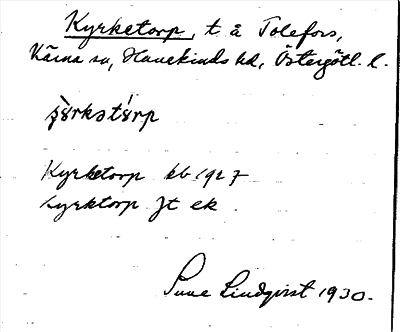 Kyrketorp, t. å Tolefors,
Kärna sn, Hanekinds hd, Östergötl. l.
Kyrketorp kb 1927
Kyrktorp Jt ek
Sune Lindqvist 1930.